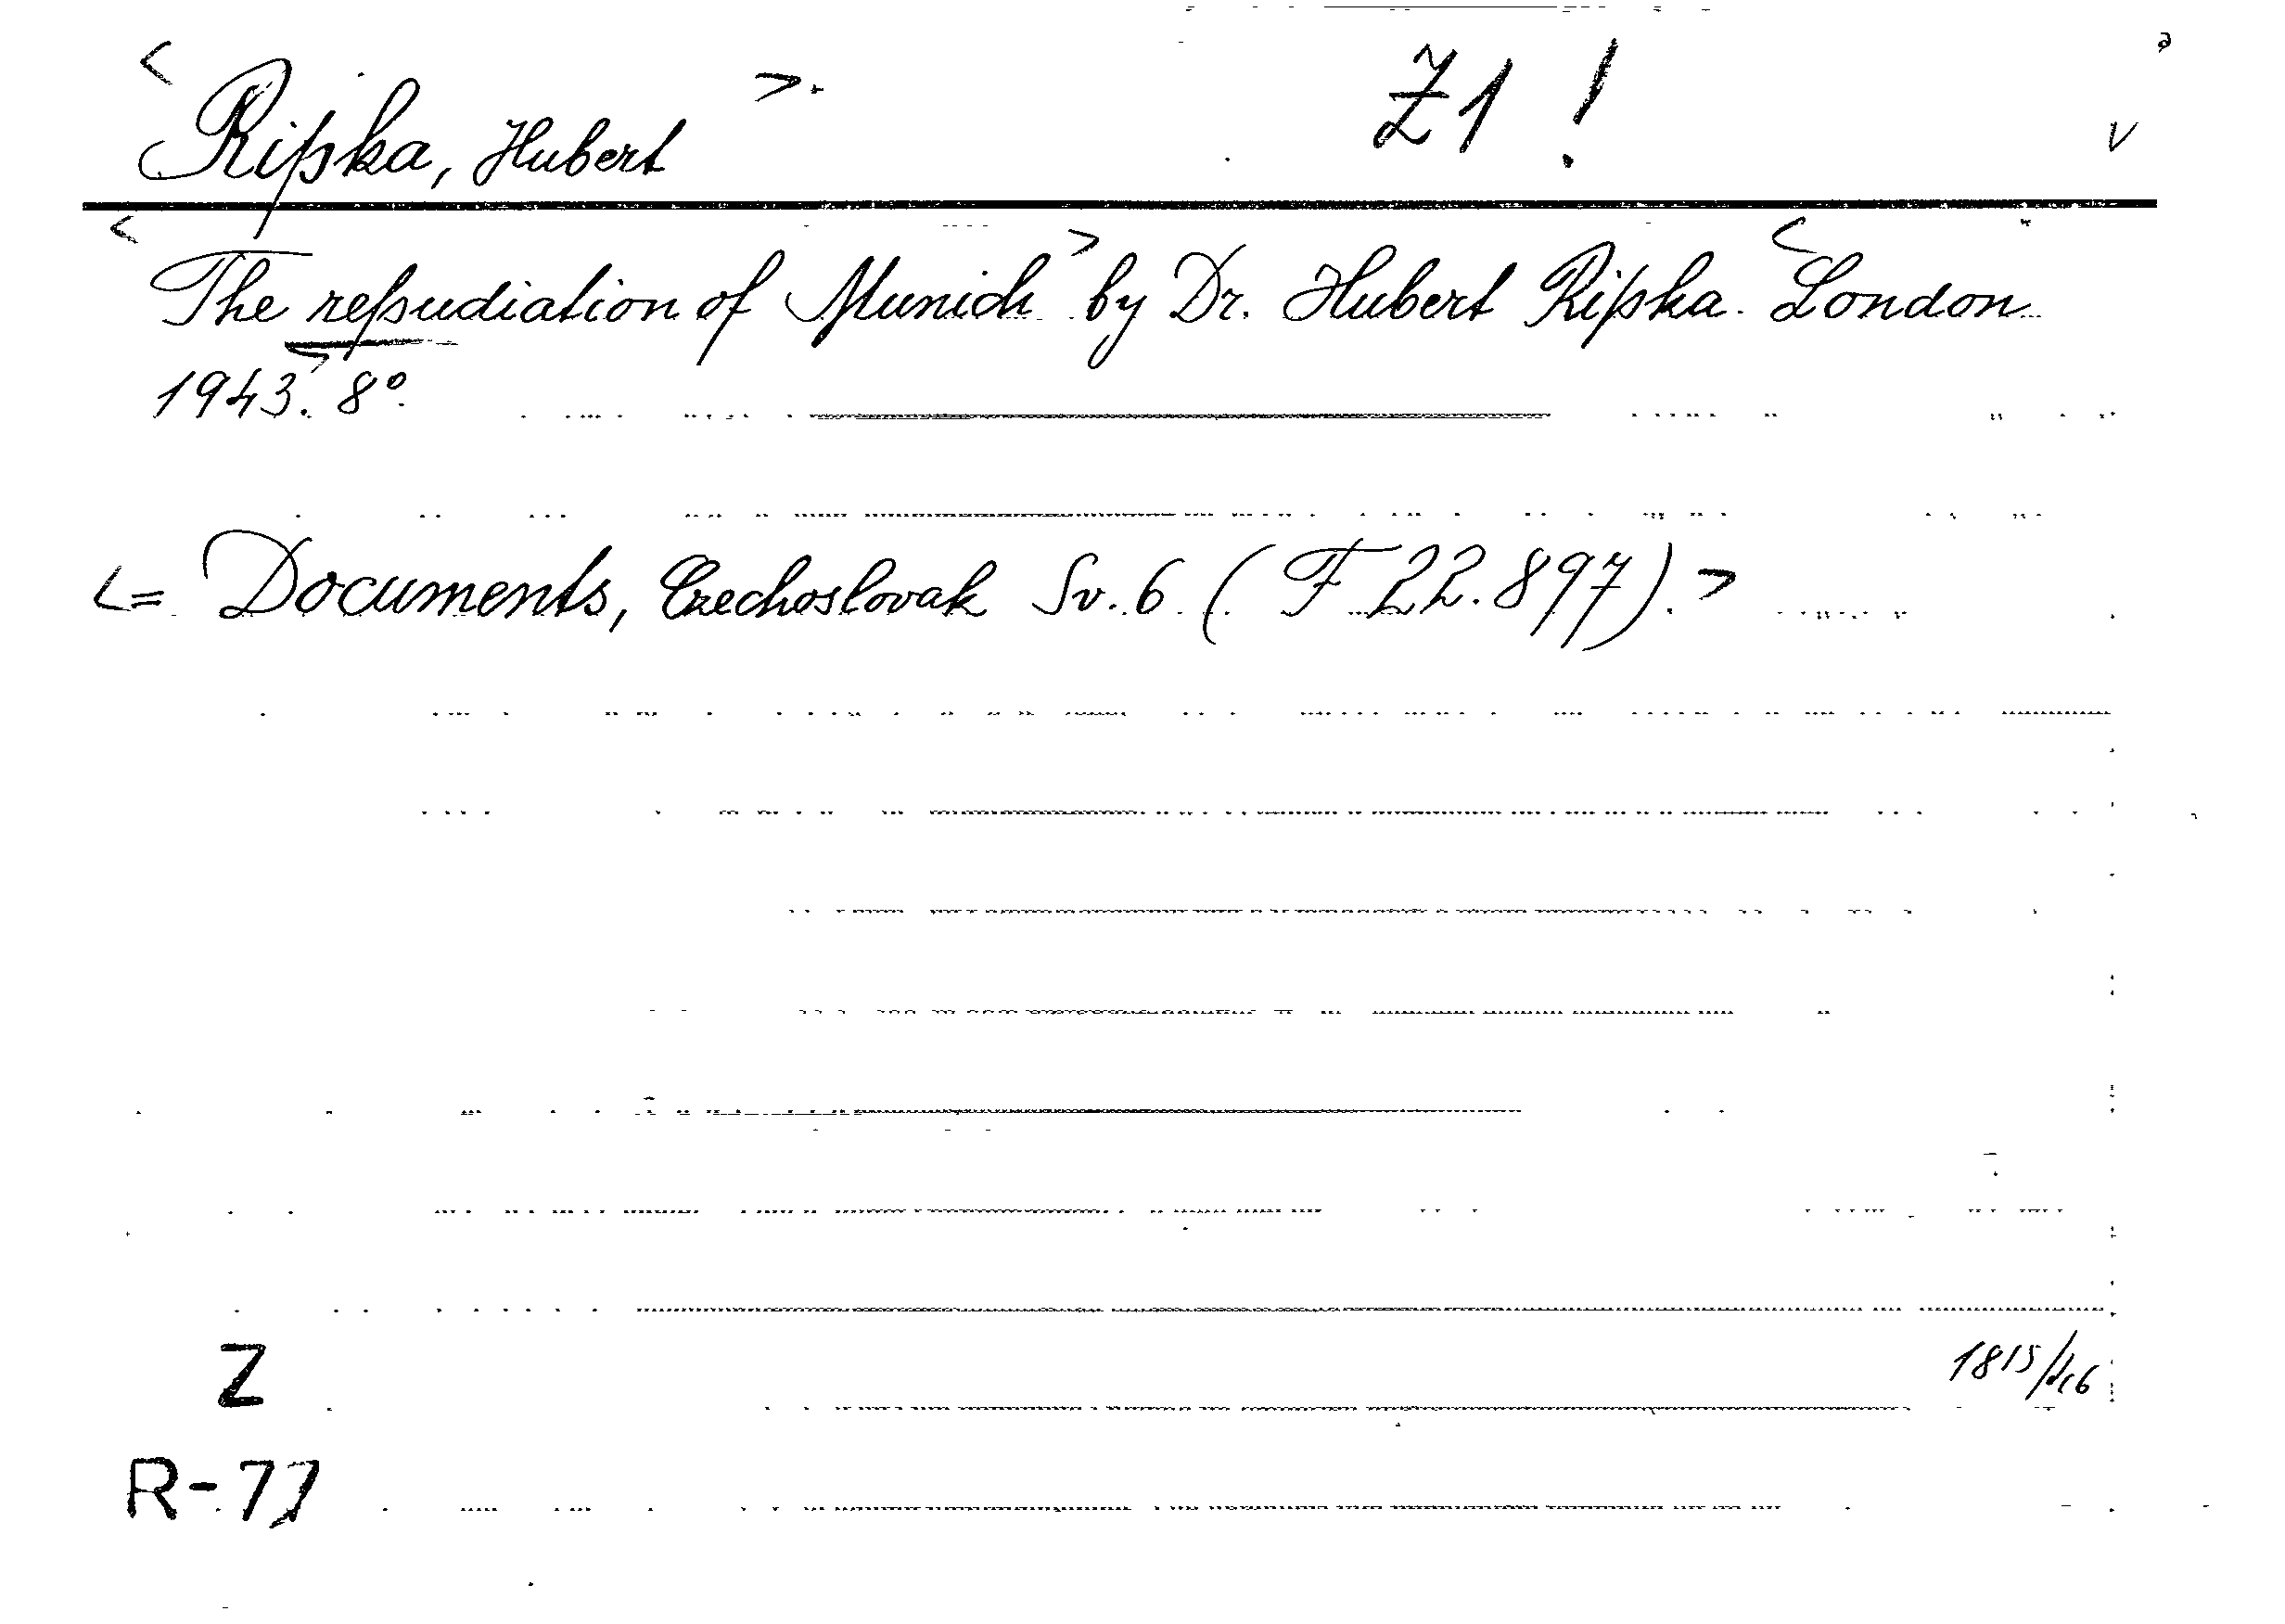 < Ripka, Hubert > Ž1 !
v
< The repudiation of Munich > by Dr. Hubert Ripka. < London
1943. > 8°
<= Documents, Czechoslovak Sv. 6 (F 22.897). >
Z
R-77